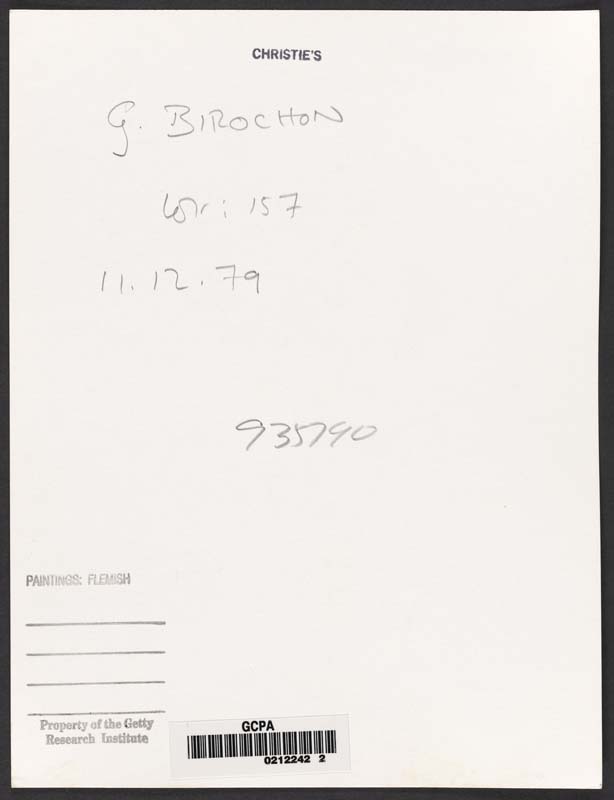 CHRISTIE'S
G. BIROCHON
Lot: 157
11.12.79
935790
PAINTINGS: FLEMISH
Property of the Getty
Research Institute
GCPA
0212242 2